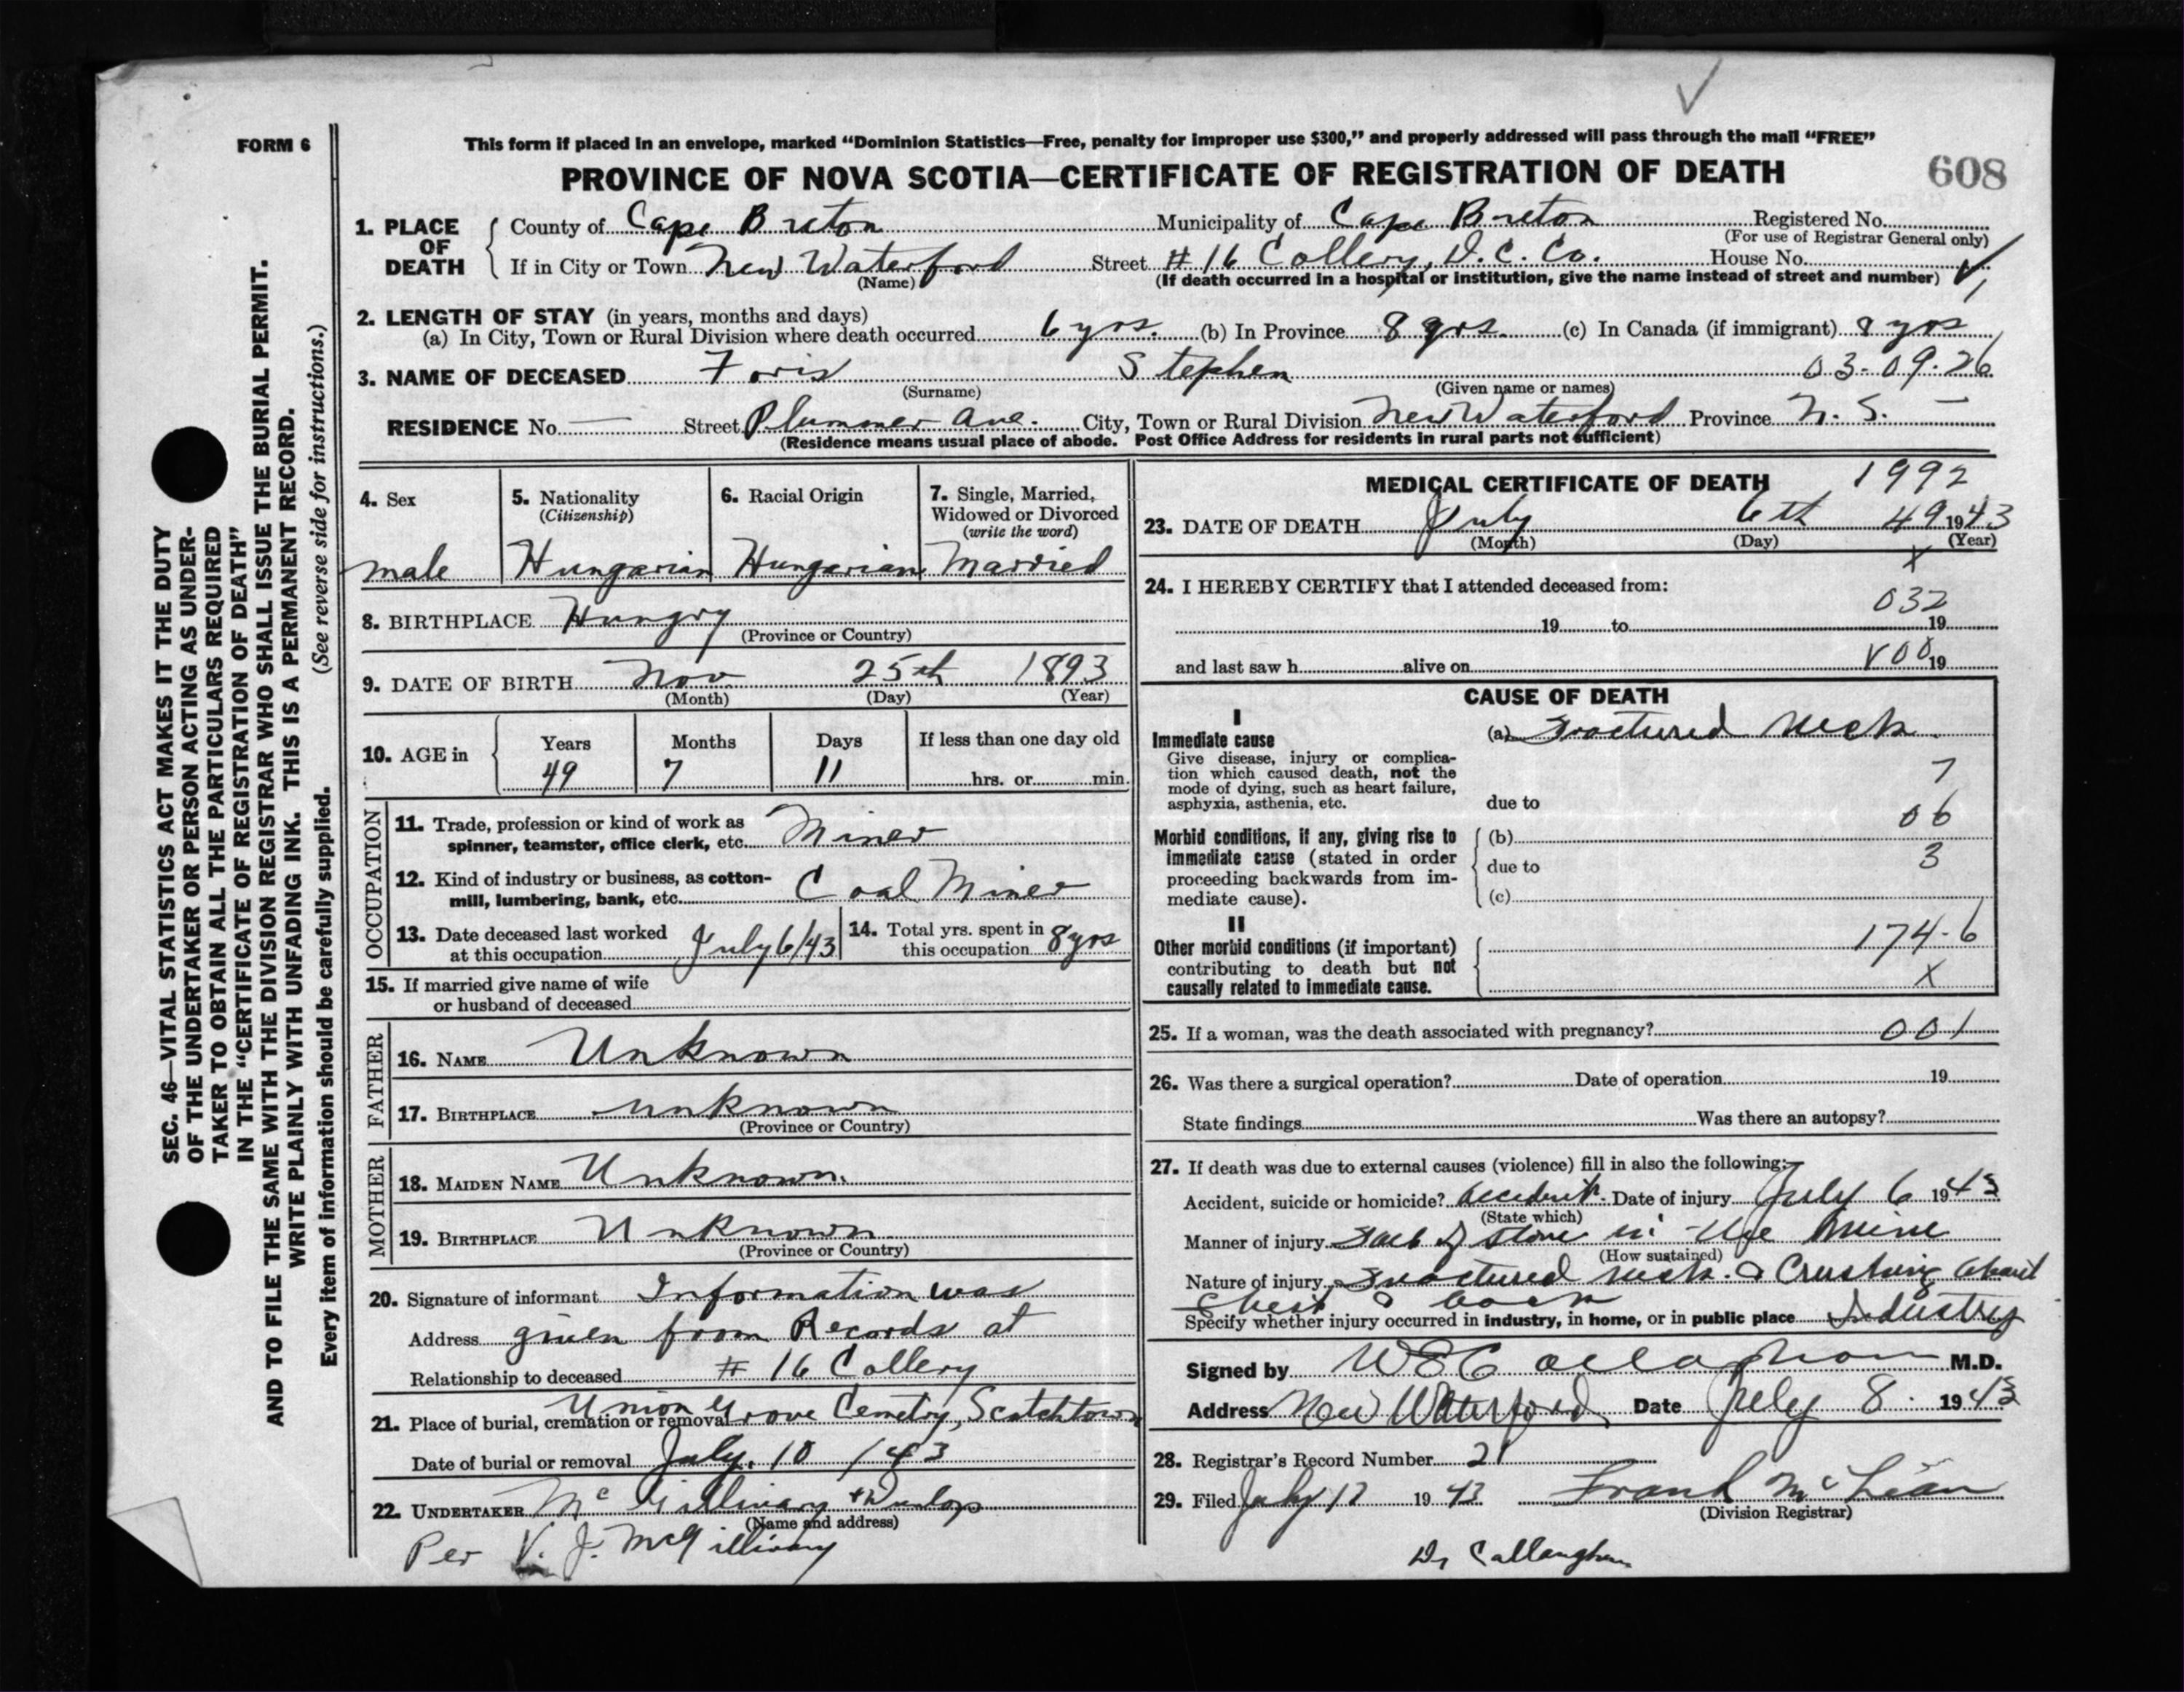 FORM 6
This form if placed in an envelope, marked “Dominion Statistics—Free, penalty for improper use $300,” and properly addressed will pass through the mail “FREE”
PROVINCE OF NOVA SCOTIA—CERTIFICATE OF REGISTRATION OF DEATH
608
SEC. 46—VITAL STATISTICS ACT MAKES IT THE DUTY
OF THE UNDERTAKER OR PERSON ACTING AS UNDER-
TAKER TO OBTAIN ALL THE PARTICULARS REQUIRED
IN THE “CERTIFICATE OF REGISTRATION OF DEATH”
AND TO FILE THE SAME WITH THE DIVISION REGISTRAR WHO SHALL ISSUE THE BURIAL PERMIT.
WRITE PLAINLY WITH UNFADING INK. THIS IS A PERMANENT RECORD.
Every item of information should be carefully supplied. (See reverse side for instructions.)
1. PLACE OF DEATH
County of Cape Breton Municipality of Cape Breton Registered No.
(For use of Registrar General only)
If in City or Town New Waterford Street # 16 Collery, D. C. Co. House No.
(Name) (If death occurred in a hospital or institution, give the name instead of street and number)
2. LENGTH OF STAY (in years, months and days)
(a) In City, Town or Rural Division where death occurred 6 yrs. (b) In Province 8 yrs. (c) In Canada (if immigrant) 8 yrs
3. NAME OF DECEASED Foris Stephen 03-09-26
(Surname) (Given name or names)
RESIDENCE No. — Street Plummer Ave. City, Town or Rural Division New Waterford Province N. S. —
(Residence means usual place of abode. Post Office Address for residents in rural parts not sufficient)
4. Sex
male
5. Nationality
(Citizenship)
Hungarian
6. Racial Origin
Hungarian
7. Single, Married,
Widowed or Divorced
(write the word)
Married
8. BIRTHPLACE Hungry
(Province or Country)
9. DATE OF BIRTH Nov 25th 1893
(Month) (Day) (Year)
10. AGE in
Years Months Days If less than one day old
49 7 11 hrs. or min.
OCCUPATION
11. Trade, profession or kind of work as
spinner, teamster, office clerk, etc. Miner
12. Kind of industry or business, as cotton-
mill, lumbering, bank, etc. Coal Miner
13. Date deceased last worked
at this occupation July 6/43
14. Total yrs. spent in
this occupation 8 yrs
15. If married give name of wife
or husband of deceased
FATHER
16. NAME Unknown
17. BIRTHPLACE unknown
(Province or Country)
MOTHER
18. MAIDEN NAME Unknown.
19. BIRTHPLACE Unknown
(Province or Country)
20. Signature of informant Information was
Address given from Records at
Relationship to deceased # 16 Collery
21. Place of burial, cremation or removal Union Grove Cemetry, Scotchtown
Date of burial or removal July. 10 /43
22. UNDERTAKER Mc Gillivary + Dunlop
(Name and address)
Per V. J. McGillivary
MEDICAL CERTIFICATE OF DEATH
1992
23. DATE OF DEATH July 6th 49 1943
(Month) (Day) (Year)
X
24. I HEREBY CERTIFY that I attended deceased from:
032
19 to 19
and last saw h alive on 19
CAUSE OF DEATH
I
Immediate cause
Give disease, injury or complica-
tion which caused death, not the
mode of dying, such as heart failure,
asphyxia, asthenia, etc.
(a) Fractured neck.
7
due to
06
Morbid conditions, if any, giving rise to
immediate cause (stated in order
proceeding backwards from im-
mediate cause).
(b)
due to
3
(c)
II
Other morbid conditions (if important)
contributing to death but not
causally related to immediate cause.
174-6
X
25. If a woman, was the death associated with pregnancy? 001
26. Was there a surgical operation? Date of operation 19
State findings Was there an autopsy?
27. If death was due to external causes (violence) fill in also the following:
Accident, suicide or homicide? Accident. Date of injury July 6 1943
(State which)
Manner of injury Fall of stone in the mine
(How sustained)
Nature of injury Fractured neck. Crushing
chest back
Specify whether injury occurred in industry, in home, or in public place Industry
Signed by W E Callaghan M.D.
Address New Waterford Date July 8. 1943
28. Registrar's Record Number 21
29. Filed July 1943 Frank McLean
(Division Registrar)
Dr Callaughan